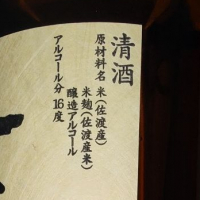 清酒
原材料名 米(佐渡産)
米麹(佐渡産米)
醸造アルコール
アルコール分 16度